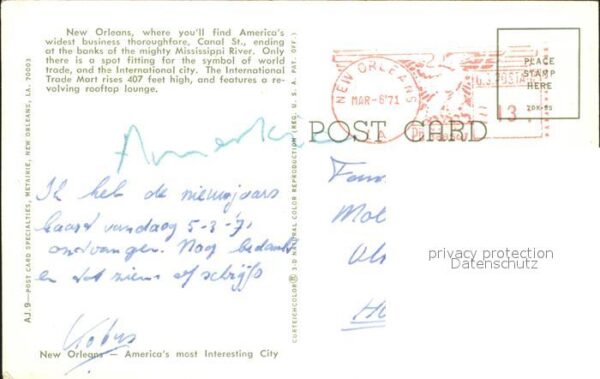 New Orleans, where you'll find America's
widest business thoroughfare, Canal St., ending
at the banks of the mighty Mississippi River. Only
there is a spot fitting for the symbol of world
trade, and the International city. The International
Trade Mart rises 407 feet high, and features a re-
volving rooftop lounge.
Amerika
Ik heb de nieuwjaars
kaart vandaag 5-3-71
ontvangen. Nog bedankt
en tot ziens of schrijfs
Kobus
New Orleans — America's most Interesting City
AJ.9—POST CARD SPECIALTIES, METAIRIE, NEW ORLEANS, LA. 70003
CURTEICHCOLOR® 3-D NATURAL COLOR REPRODUCTION (REG. U. S. A. PAT. OFF.)
NEW ORLEANS
MAR-6'71
U.S. POSTAGE
13
PLACE
STAMP
HERE
POST CARD
Fam
Mol
HO
privacy protection
Datenschutz